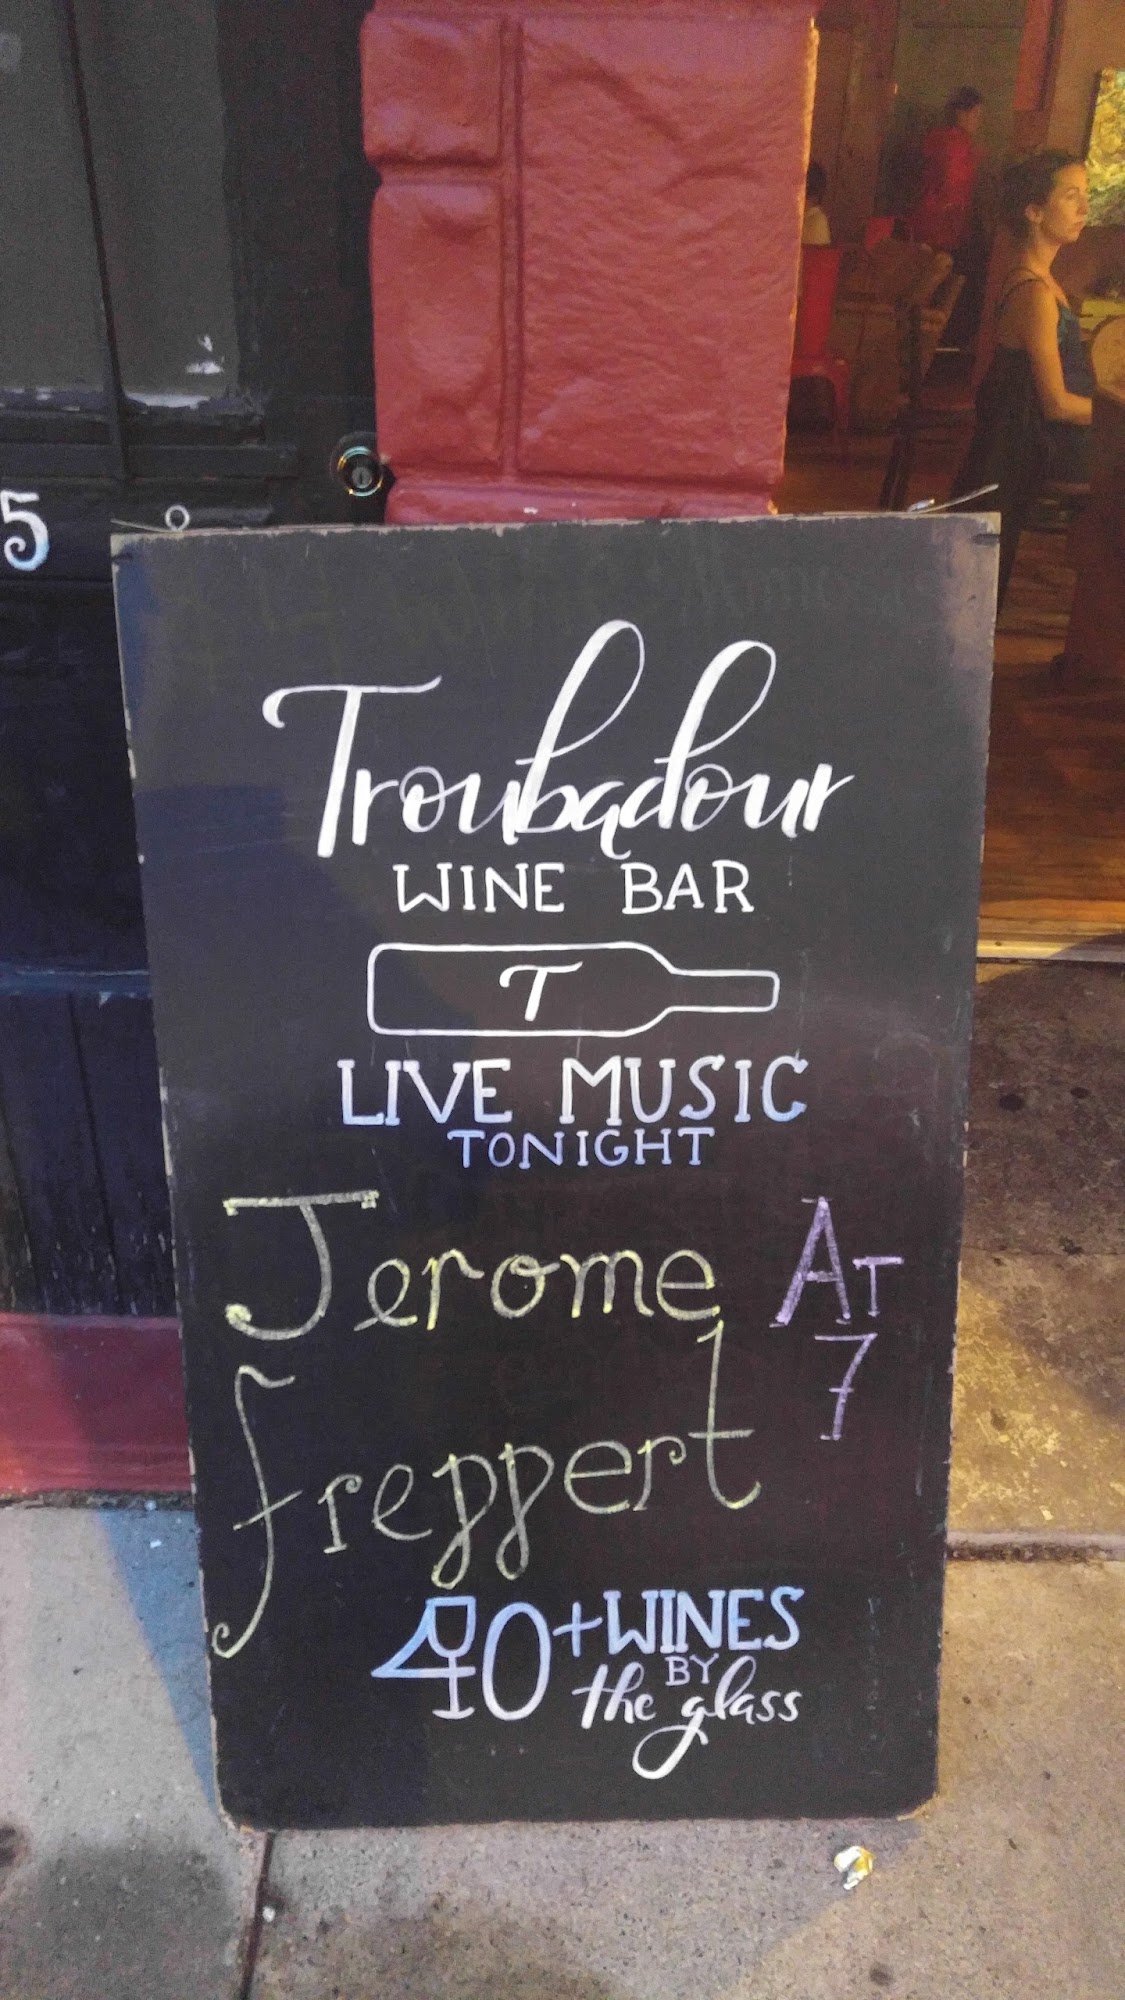 5
Troubadour
WINE BAR
T
LIVE MUSIC
TONIGHT
Jerome At
freppert 7
40+ WINES
BY
the glass